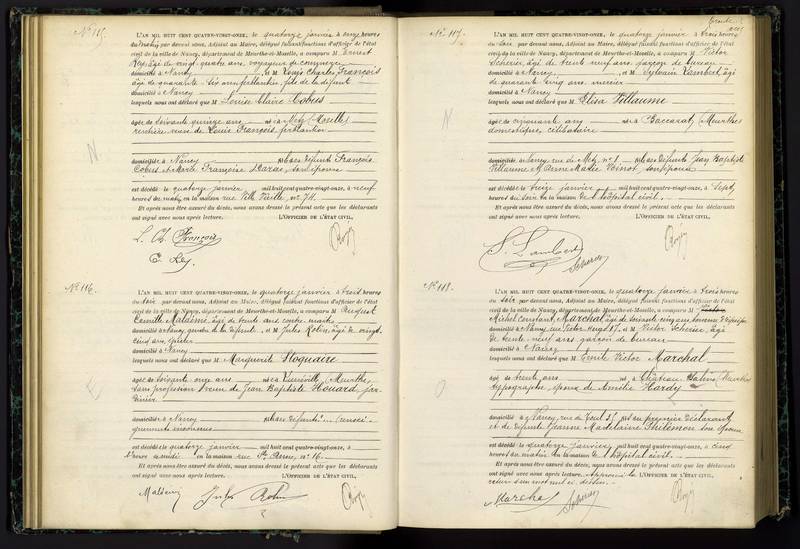 N° 115.
L'AN MIL HUIT CENT QUATRE-VINGT-ONZE, le quatorze janvier à onze heures
du matin par devant nous, Adjoint au Maire, délégué faisant fonctions d'officier de l'état
civil de la ville de Nancy, département de Meurthe-et-Moselle, a comparu M Ernest
âgé de vingt quatre ans, voyageur de commerce
domicilié à Nancy, et M Louis Charles François
âgé de quarante six ans ferblantier, fils de la défunte
domicilié à Nancy
lesquels nous ont déclaré que M Louise Claire Cobus
âgée de soixante quinze ans née à Metz (Moselle)
rentière veuve de Louis François, ferblantier
domiciliée à Nancy fille des défunts François
Cobus et Marie Françoise son épouse
est décédée le quatorze janvier mil huit cent quatre-vingt-onze, à neuf
heures du matin, en la maison rue Ville Vieille n° 74.
Et après nous être assuré du décès, nous avons dressé le présent acte que les déclarants
ont signé avec nous après lecture. L'OFFICIER DE L'ÉTAT CIVIL,
L. Ch. François
N
N° 116.
L'AN MIL HUIT CENT QUATRE-VINGT-ONZE, le quatorze janvier à trois heures
du soir par devant nous, Adjoint au Maire, délégué faisant fonctions d'officier de l'état
civil de la ville de Nancy, département de Meurthe-et-Moselle, a comparu M August
Camille âgé de trente ans
domicilié à Nancy, gendre de la défunte, et M Jules Robin, âgé de vingt
cinq ans,
domicilié à Nancy
lesquels nous ont déclaré que M Marguerite Hoquaire
âgée de soixante onze ans née à Lunéville (Meurthe)
sans profession veuve de Jean Baptiste Houard, jar-
dinier
domiciliée à Nancy fille des défunts (rensei-
gnements inconnus
est décédée le quatorze janvier mil huit cent quatre-vingt-onze, à
heures en la maison rue Ste Anne, n° 16.
Et après nous être assuré du décès, nous avons dressé le présent acte que les déclarants
ont signé avec nous après lecture. L'OFFICIER DE L'ÉTAT CIVIL,
Jules Robin
N° 117.
L'AN MIL HUIT CENT QUATRE-VINGT-ONZE, le quatorze janvier à trois heures
du soir par devant nous, Adjoint au Maire, délégué faisant fonctions d'officier de l'état
civil de la ville de Nancy, département de Meurthe-et-Moselle, a comparu M Victor
Scherier âgé de trente neuf ans, garçon de bureau
domicilié à Nancy, et M Sylvain Lambert, âgé
de quarante cinq ans, mercier
domicilié à Nancy
lesquels nous ont déclaré que M Elisa Villaume
âgée de cinquante ans née à Baccarat, (Meurthe)
domestique, célibataire
domiciliée à Nancy, rue de Metz, n° 1 fille des défunts Jean Baptiste
Villaume et Anne Marie Voinot, son épouse
est décédée le treize janvier mil huit cent quatre-vingt-onze, à sept
heures du soir en la maison de l'hôpital civil.
Et après nous être assuré du décès, nous avons dressé le présent acte que les déclarants
ont signé avec nous après lecture. L'OFFICIER DE L'ÉTAT CIVIL,
S. Lambert
N
N° 118.
L'AN MIL HUIT CENT QUATRE-VINGT-ONZE, le quatorze janvier à trois heures
du soir par devant nous, Adjoint au Maire, délégué faisant fonctions d'officier de l'état
civil de la ville de Nancy, département de Meurthe-et-Moselle, a comparu M
Michel Constant Marchal âgé de soixante cinq ans, homme d'équipe
domicilié à Nancy rue Victor Hugo et M Victor Scherier, âgé
de trente neuf ans garçon de bureau
domicilié à Nancy
lesquels nous ont déclaré que M Emile Victor Marchal
âgé de trente ans né à Château Salins (Meurthe)
typographe, époux de Amélie Hardy
domicilié à Nancy, rue de Toul fils du premier déclarant
et de défunte Jeanne Madelaine Philémon son épouse
est décédé le quatorze janvier, mil huit cent quatre-vingt-onze, à cinq
heures du matin en la maison de l'hôpital civil.
Et après nous être assuré du décès, nous avons dressé le présent acte que les déclarants
ont signé avec nous après lecture. L'OFFICIER DE L'ÉTAT CIVIL,
Marchal